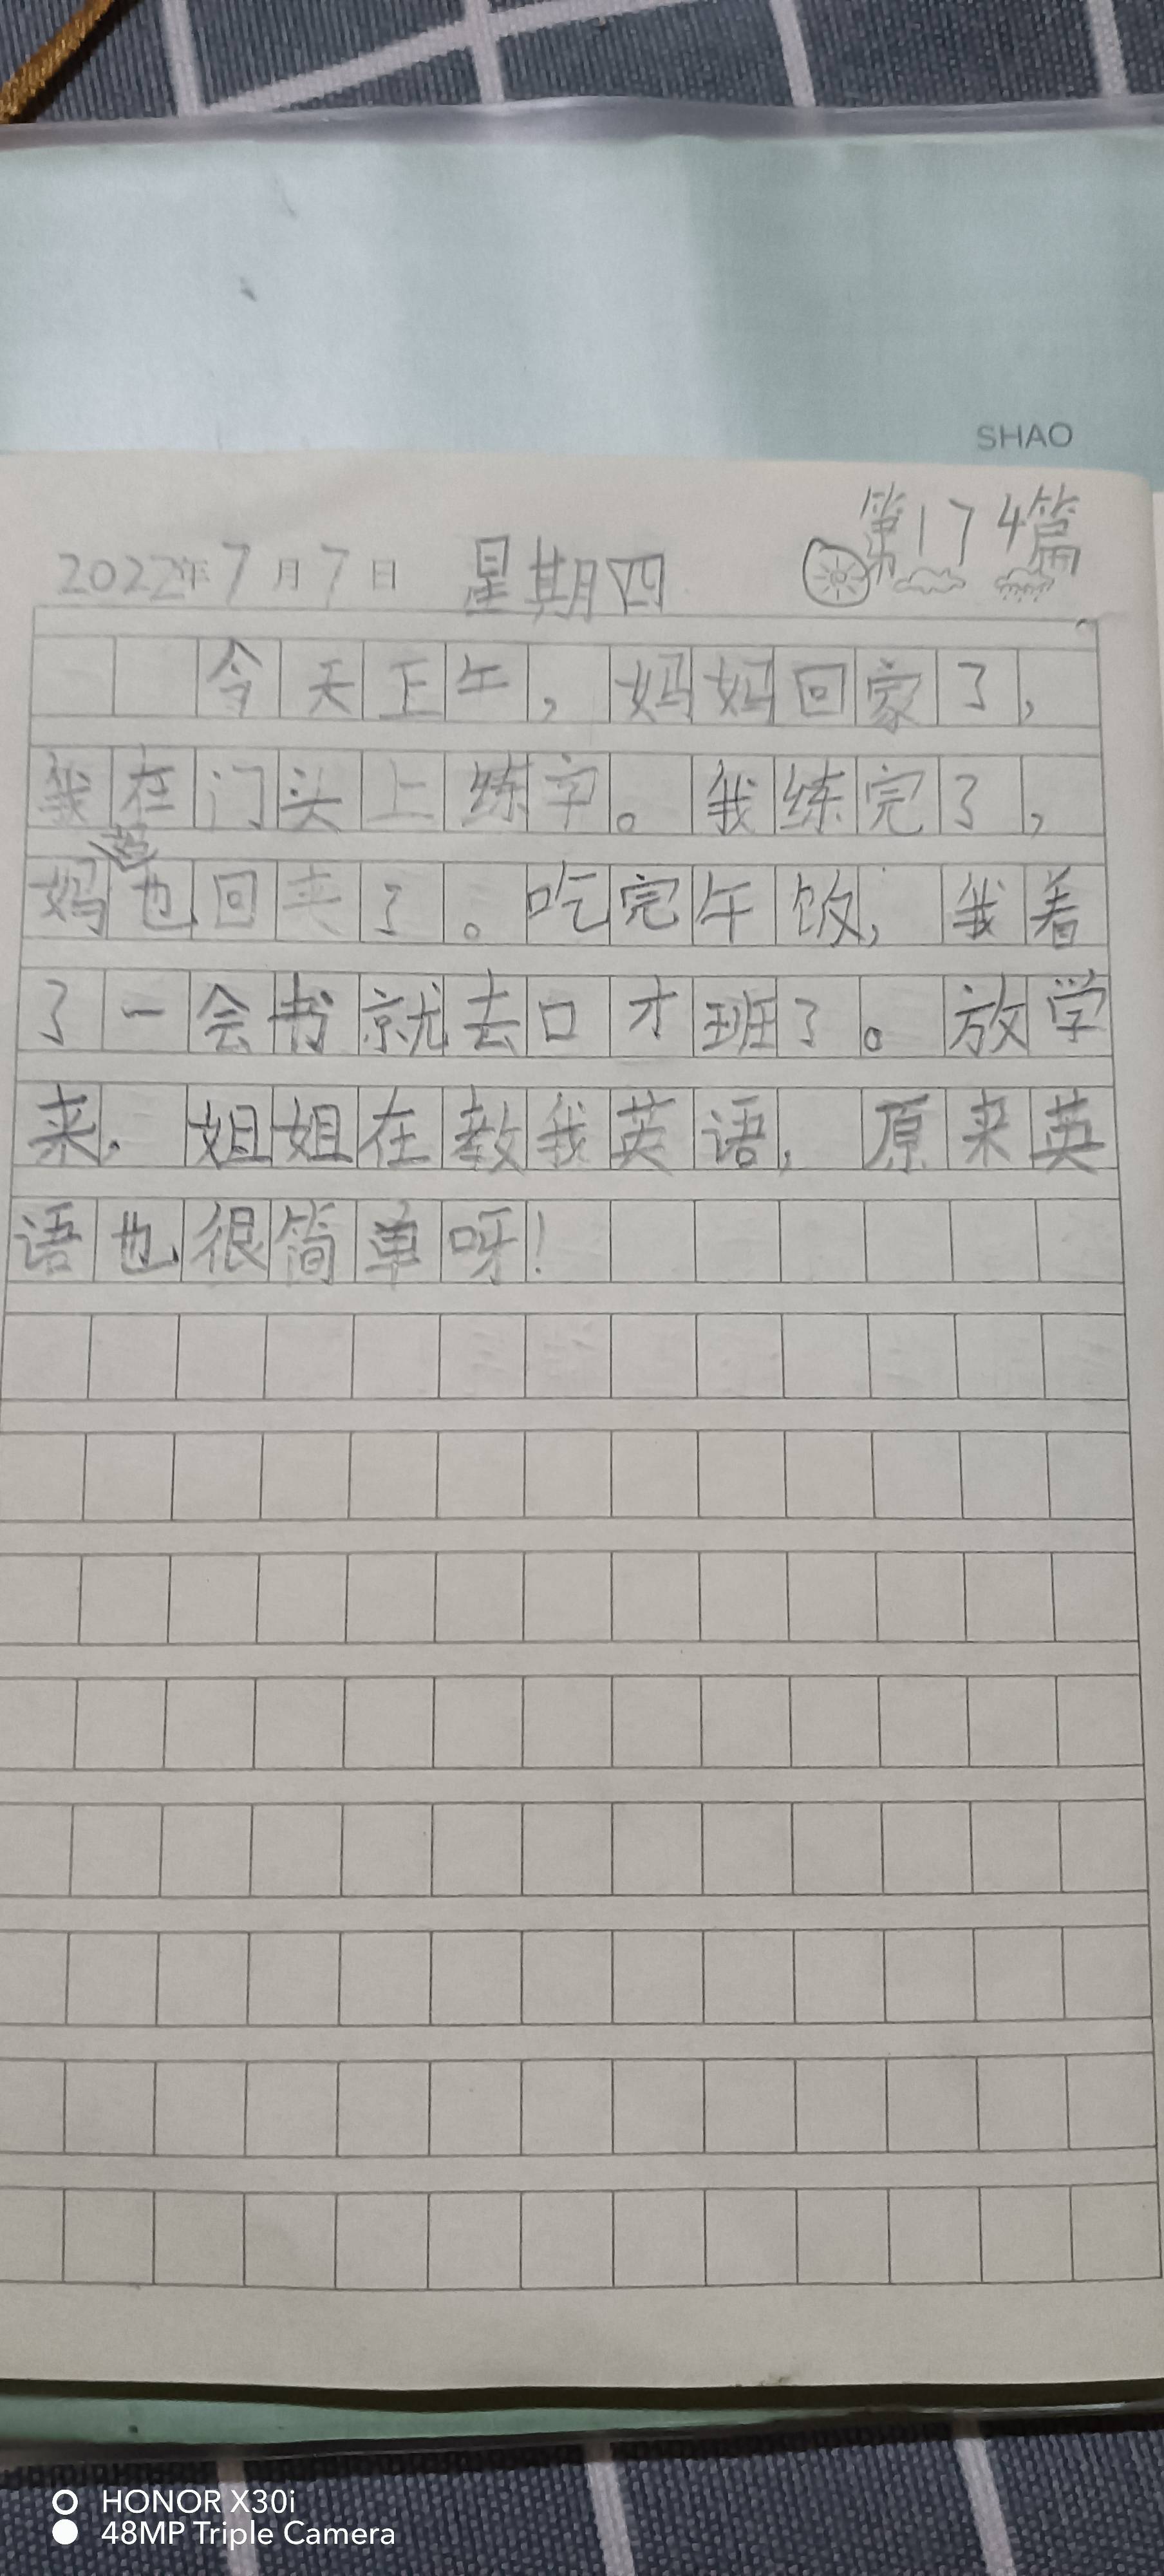 SHAO
第174篇
2022年7月7日 星期四
今天上午，妈妈回家了，
我在门头上练字。我练完了，
妈也回来了。吃完午饭，我着
了一会书就去口才班了。放学
来，姐姐在教我英语，原来英
语也很简单呀！
HONOR X30i
48MP Triple Camera